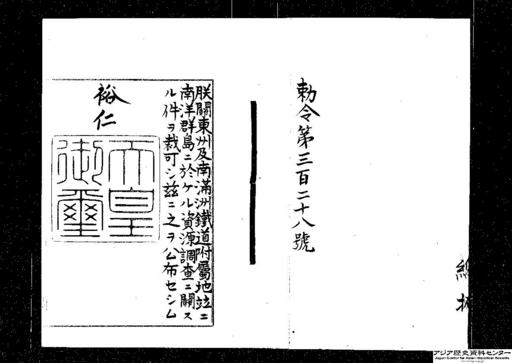 勅令第三百二十八號
朕關東州及南滿洲鐵道附屬地竝ニ
南洋群島ニ於ケル資源調査ニ關ス
ル件ヲ裁可シ茲ニ之ヲ公布セシム
裕仁
天皇
御璽
アジア歴史資料センター
Japan Center for Asian Historical Records